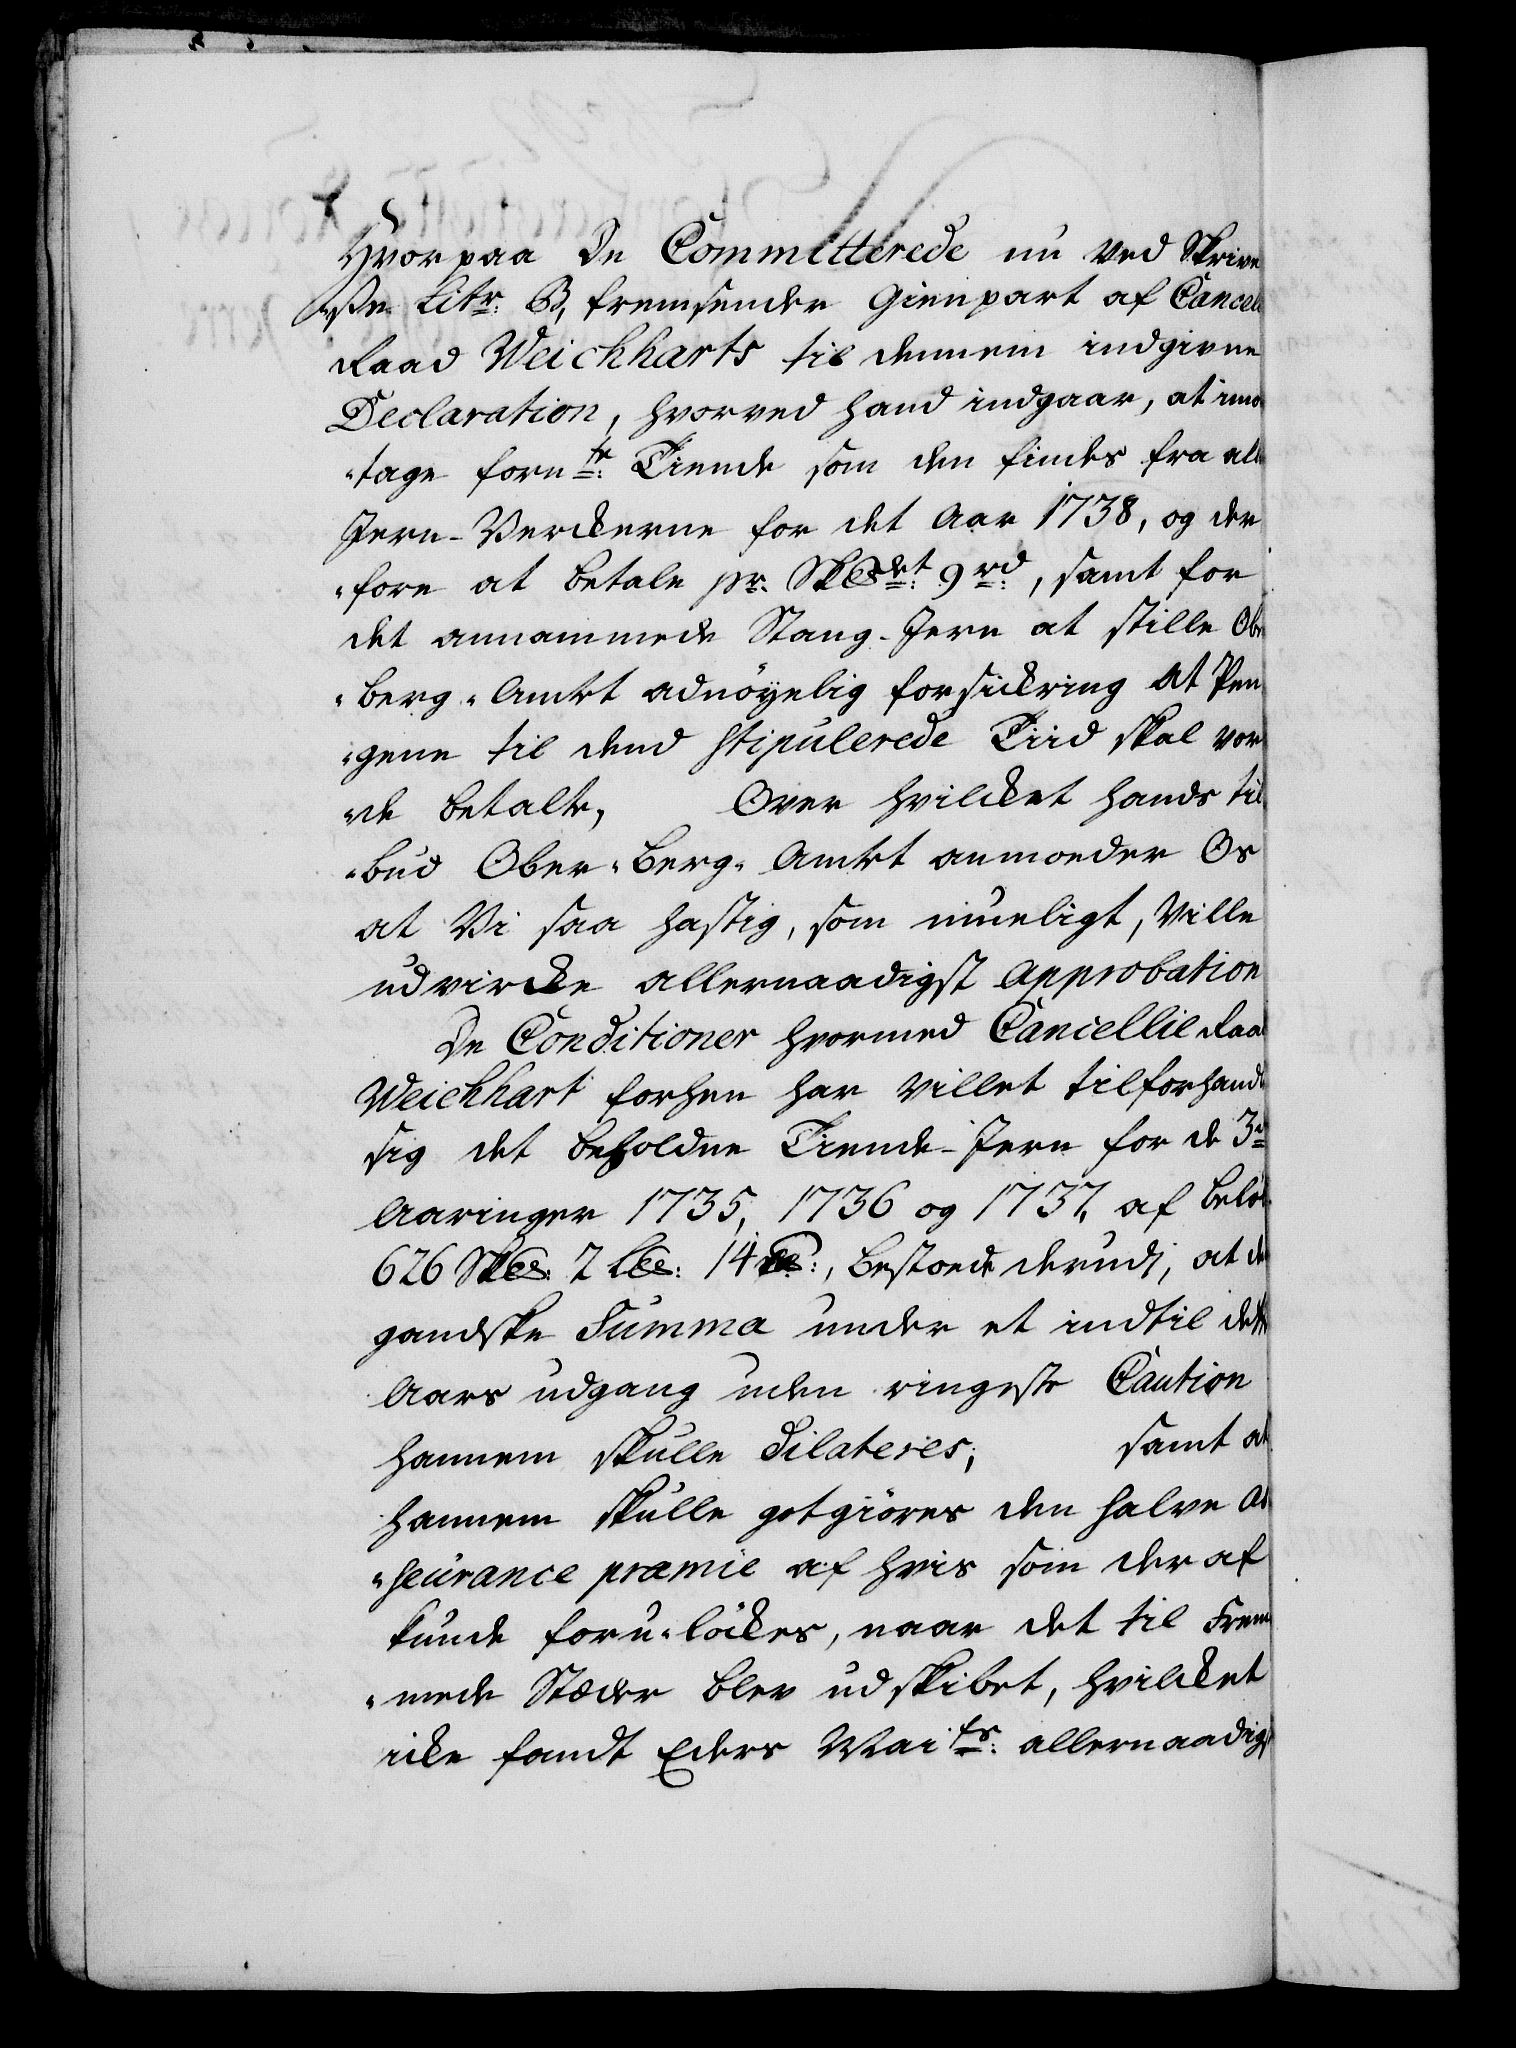 Hvorpaa De Committerede nu ved Skrive
„lse Litr. B, fremsender Gienpart af Cancel
Raad Weichharts til dennem indgivne
Declaration, hvorved hand indgaar, at imo
„tage fornte: Tiende som den findes fra alle
Jern-Verckerne for det Aar 1738, og der
„fore at betale pr. Sk℔det: 9 rd:, samt for
det annammede Stang-Jern at stille Obe
„berg-Amtet adnöyelig forsickring at Pen
„gene til dend stipulerede Tiid skal vor
„de betalte, Over hvilcket hands til
„bud Ober-Berg-Amtet anmoder Os
at Vi saa hastig, som mueligt, Ville
udvircke allernaadigst Approbation
De Conditioner hvormed Cancellie Raad
Weichhart forhen har villet tilforhandle
sig det beholdne Tiende-Jern for de 3de
Aaringer 1735, 1736 og 1737, af belöb
626 Sk℔: 2 L℔: 14 ℔:, bestoede derudj, at de
gandske Summa under et indtil dette
Aars udgang uden ringeste Caution
hannem skulle dilateres; samt at
hannem skulle gotgiöres den halve As
„seurance præmie af hvis som der af
kunde foru-löckes, naar det til Frem
„mede Stæder blev udskibet, hvilcket
icke fandt Eders Maits: allernaadigst